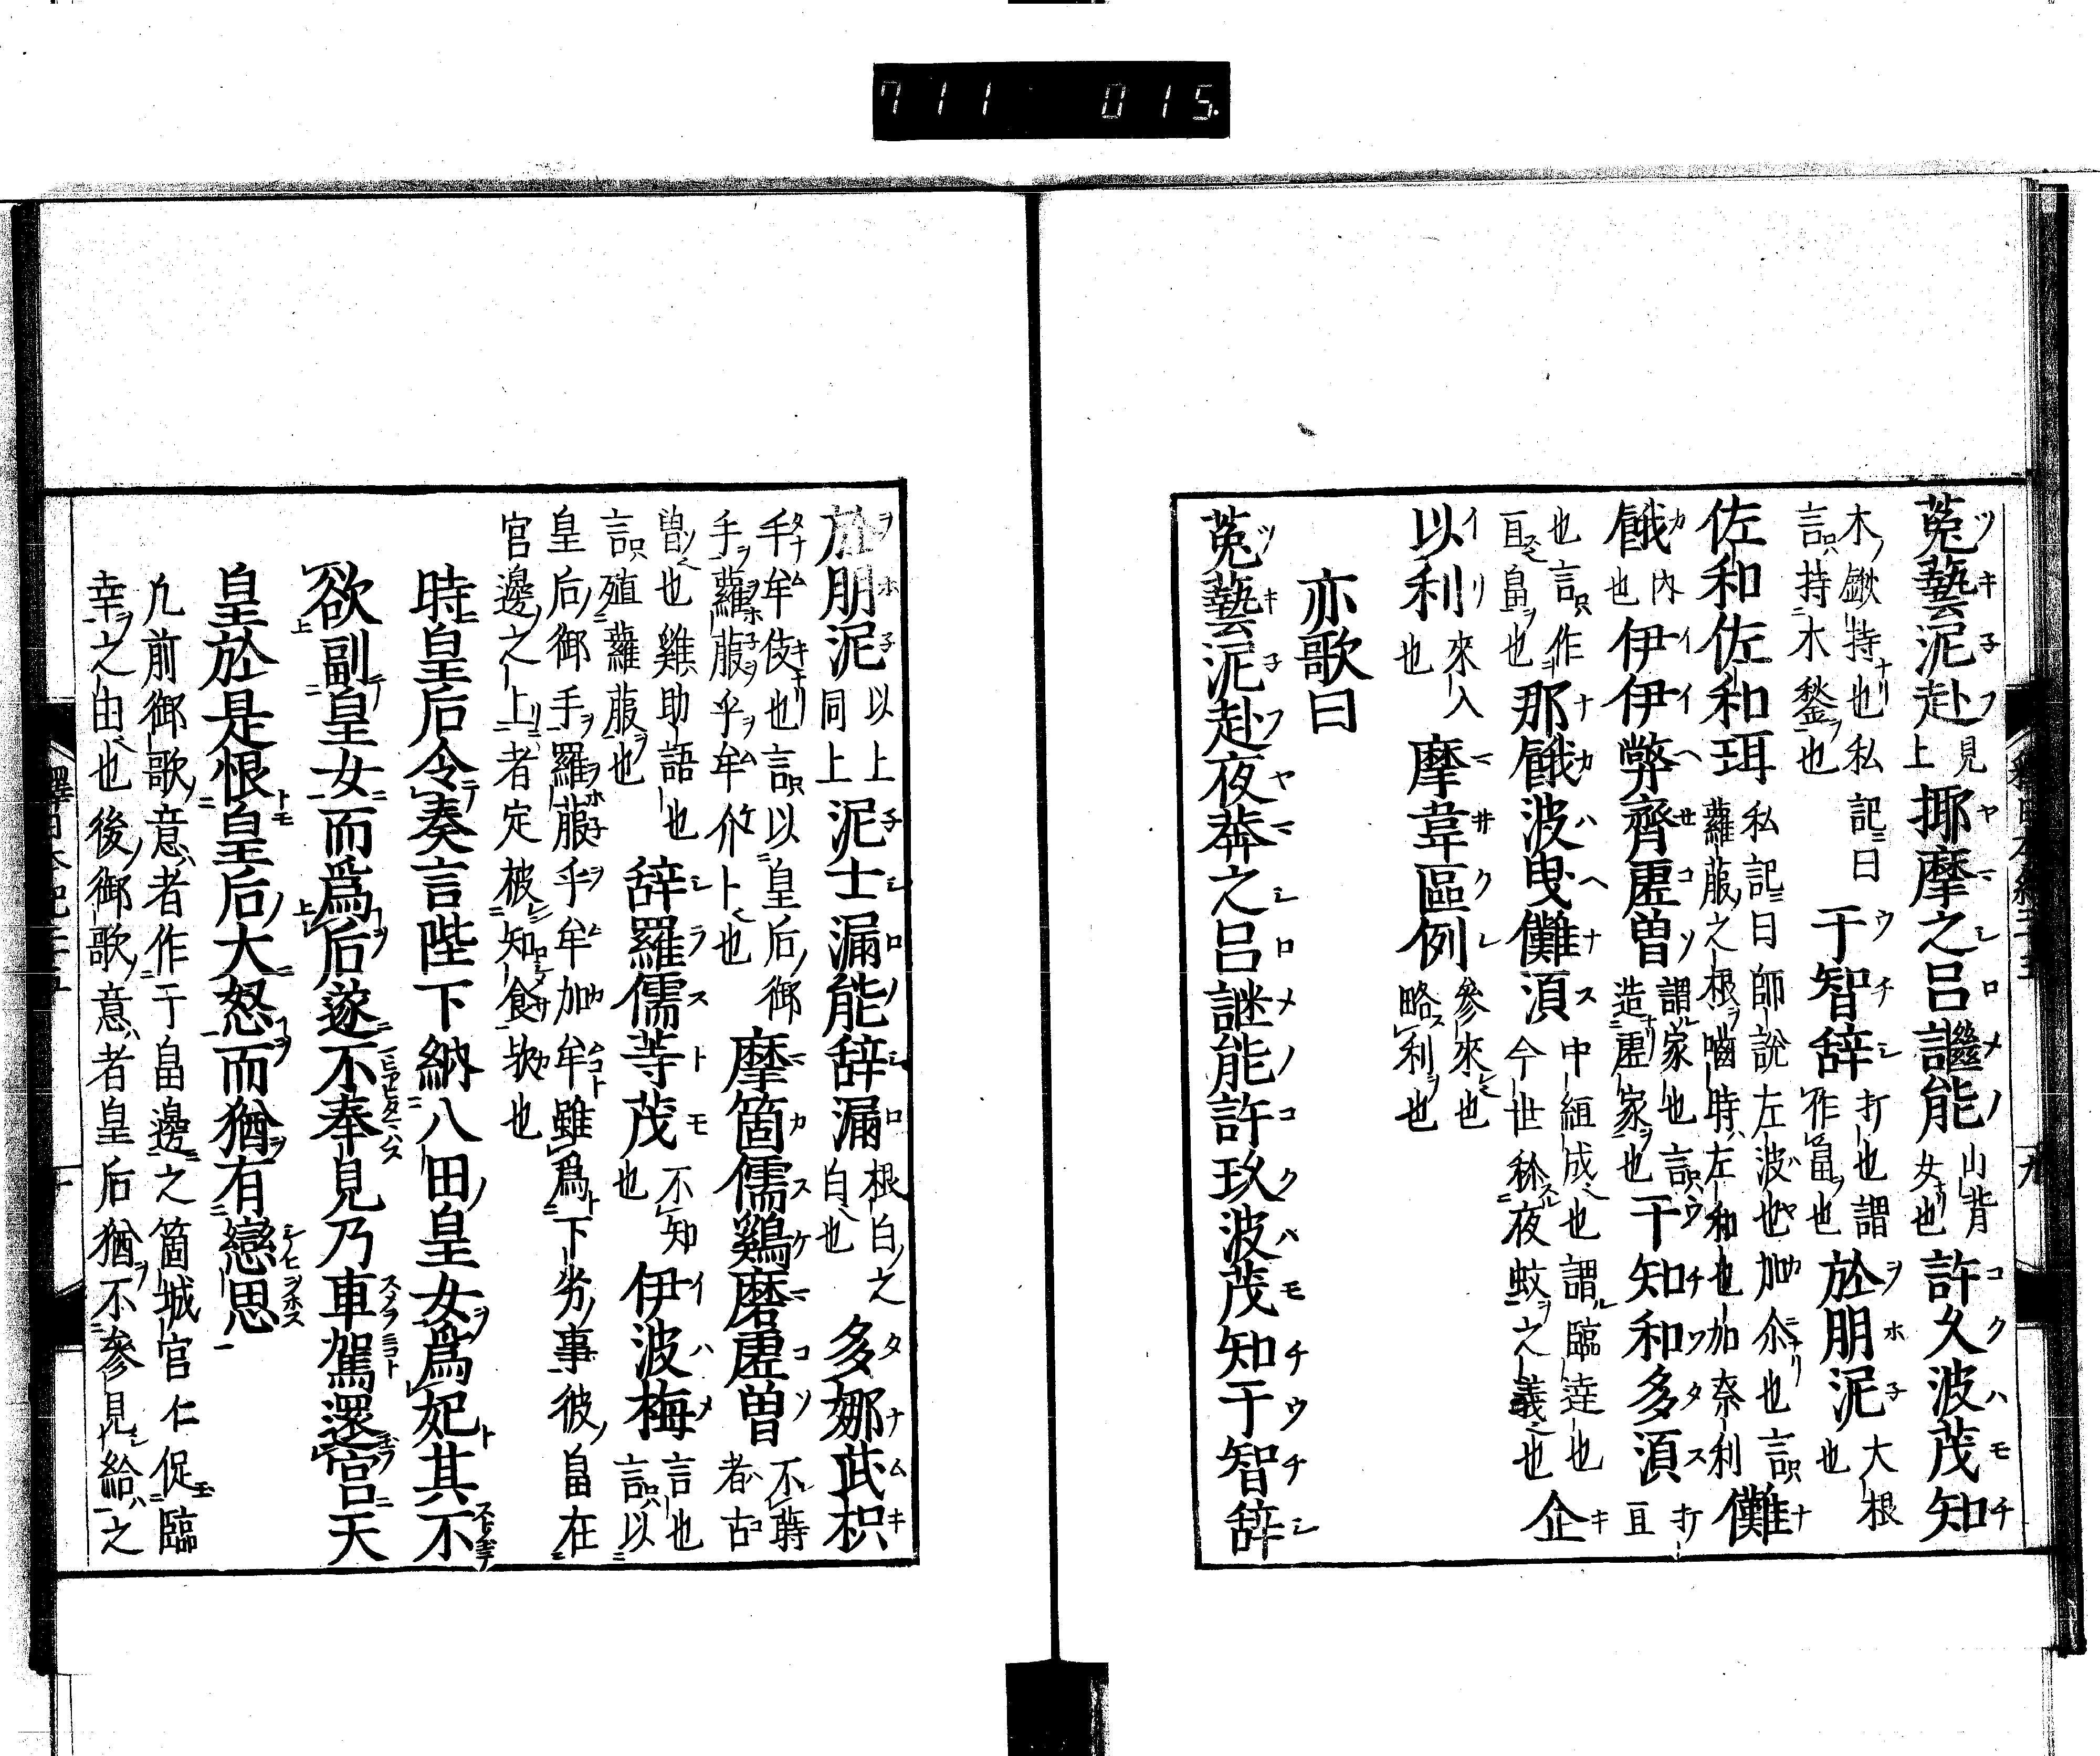 711 015
菟藝泥赴見上揶摩之呂謎能山背女也許久波茂知
木鍬持也私記曰言持木鍫也于智辞打也謂作畠也於朋泥大根也
佐和佐和珥私記曰師說左波也加尒也言蘿菔之根嚙時左和也加奈利儺
餓内也伊伊弊齊虛曽謂家也言造虛家也于知和多湏打亘
也言作亘畠也那餓波曳儺湏中絙成也謂臨達也今世秡夜蚊之義也企
以利來入也摩韋區例參來也略利也
亦歌曰
菟藝泥赴夜莾之呂謎能許玖波茂知于智辞
於朋泥以上同上泥士漏能辞漏根白之白也多娜武枳
手牟伎也言以皇后御手蘿菔乎牟介卜也摩箇儒鷄磨虛曽不蒔者古
曽也雞助語也言殖蘿菔也辞羅儒等茂不知也伊波梅言也言以
皇后御手羅菔乎牟加牟雖爲下劣事彼畠在
官邊之上者定被知食欤也
時皇后令奏言陛下納八田皇女爲妃其不
欲副皇女而爲后遂不奉見乃車駕還宮天
皇於是恨皇后大怒而猶有戀思
凢前御歌意者作于畠邊之箇城官仁促臨
幸之由也後御歌意者皇后猶不參見給之